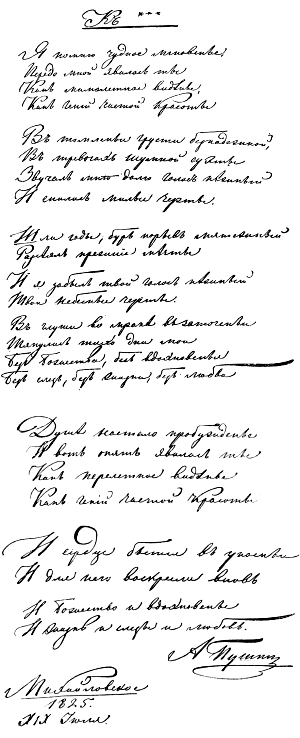 Къ ***
Я помню чудное мгновенье,
Передо мной явилась ты
Какъ мимолетное видѣнье,
Какъ геній чистой красоты
Въ томленьи грусти безнадежной,
Въ тревогахъ шумной суеты
Звучалъ мнѣ долго голосъ нѣжный
И снились милые черты.
Шли годы, бурь порывъ мятежный
Разсѣялъ прежніе мечты
И я забылъ твой голосъ нѣжный
Твои небесные черты.
Въ глуши во мракѣ заточенья
Тянулись тихо дни мои
Безъ божества, безъ вдохновенья
Безъ слезъ, безъ жизни, безъ любви
Душѣ настало пробужденье
И вотъ опять явилась ты
Какъ мимолетное видѣнье
Какъ геній чистой красоты
И сердце бьется въ упоеньи
И для него воскресли вновь
И божество и вдохновенье
И жизнь и слезы и любовь.
А Пушкин
Михайловское
1825.
XIX Іюля.